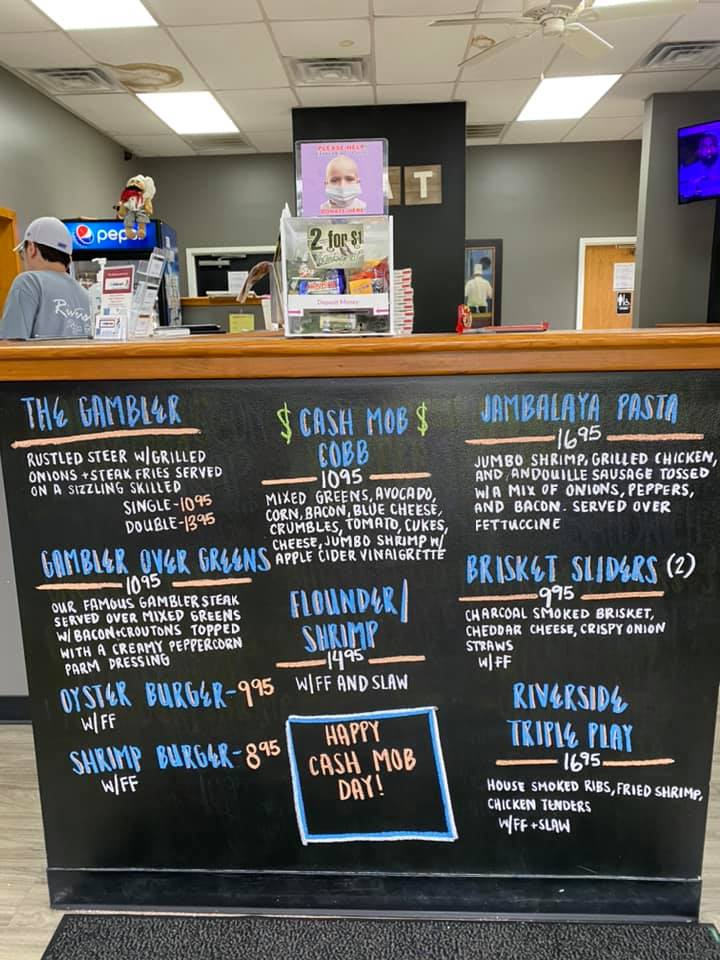 PLEASE HELP
DONATE HERE
2 for $1
Deposit Money
pepsi
AT
THE GAMBLER
RUSTLED STEER W/GRILLED
ONIONS + STEAK FRIES SERVED
ON A SIZZLING SKILLED
SINGLE-1095
DOUBLE-1395
GAMBLER OVER GREENS
1095
OUR FAMOUS GAMBLER STEAK
SERVED OVER MIXED GREENS
W/BACON+CROUTONS TOPPED
WITH A CREAMY PEPPERCORN
PARM DRESSING
OYSTER BURGER-995
W/FF
SHRIMP BURGER-895
W/FF
$ CASH MOB $
COBB
1095
MIXED GREENS, AVOCADO,
CORN, BACON, BLUE CHEESE,
CRUMBLES, TOMATO, CUKES,
CHEESE, JUMBO SHRIMP W/
APPLE CIDER VINAIGRETTE
FLOUNDER/
SHRIMP
1495
W/FF AND SLAW
HAPPY
CASH MOB
DAY!
JAMBALAYA PASTA
1695
JUMBO SHRIMP, GRILLED CHICKEN,
AND ANDOUILLE SAUSAGE TOSSED
W/A MIX OF ONIONS, PEPPERS,
AND BACON. SERVED OVER
FETTUCCINE
BRISKET SLIDERS (2)
995
CHARCOAL SMOKED BRISKET,
CHEDDAR CHEESE, CRISPY ONION
STRAWS
W/FF
RIVERSIDE
TRIPLE PLAY
1695
HOUSE SMOKED RIBS, FRIED SHRIMP,
CHICKEN TENDERS
W/FF +SLAW